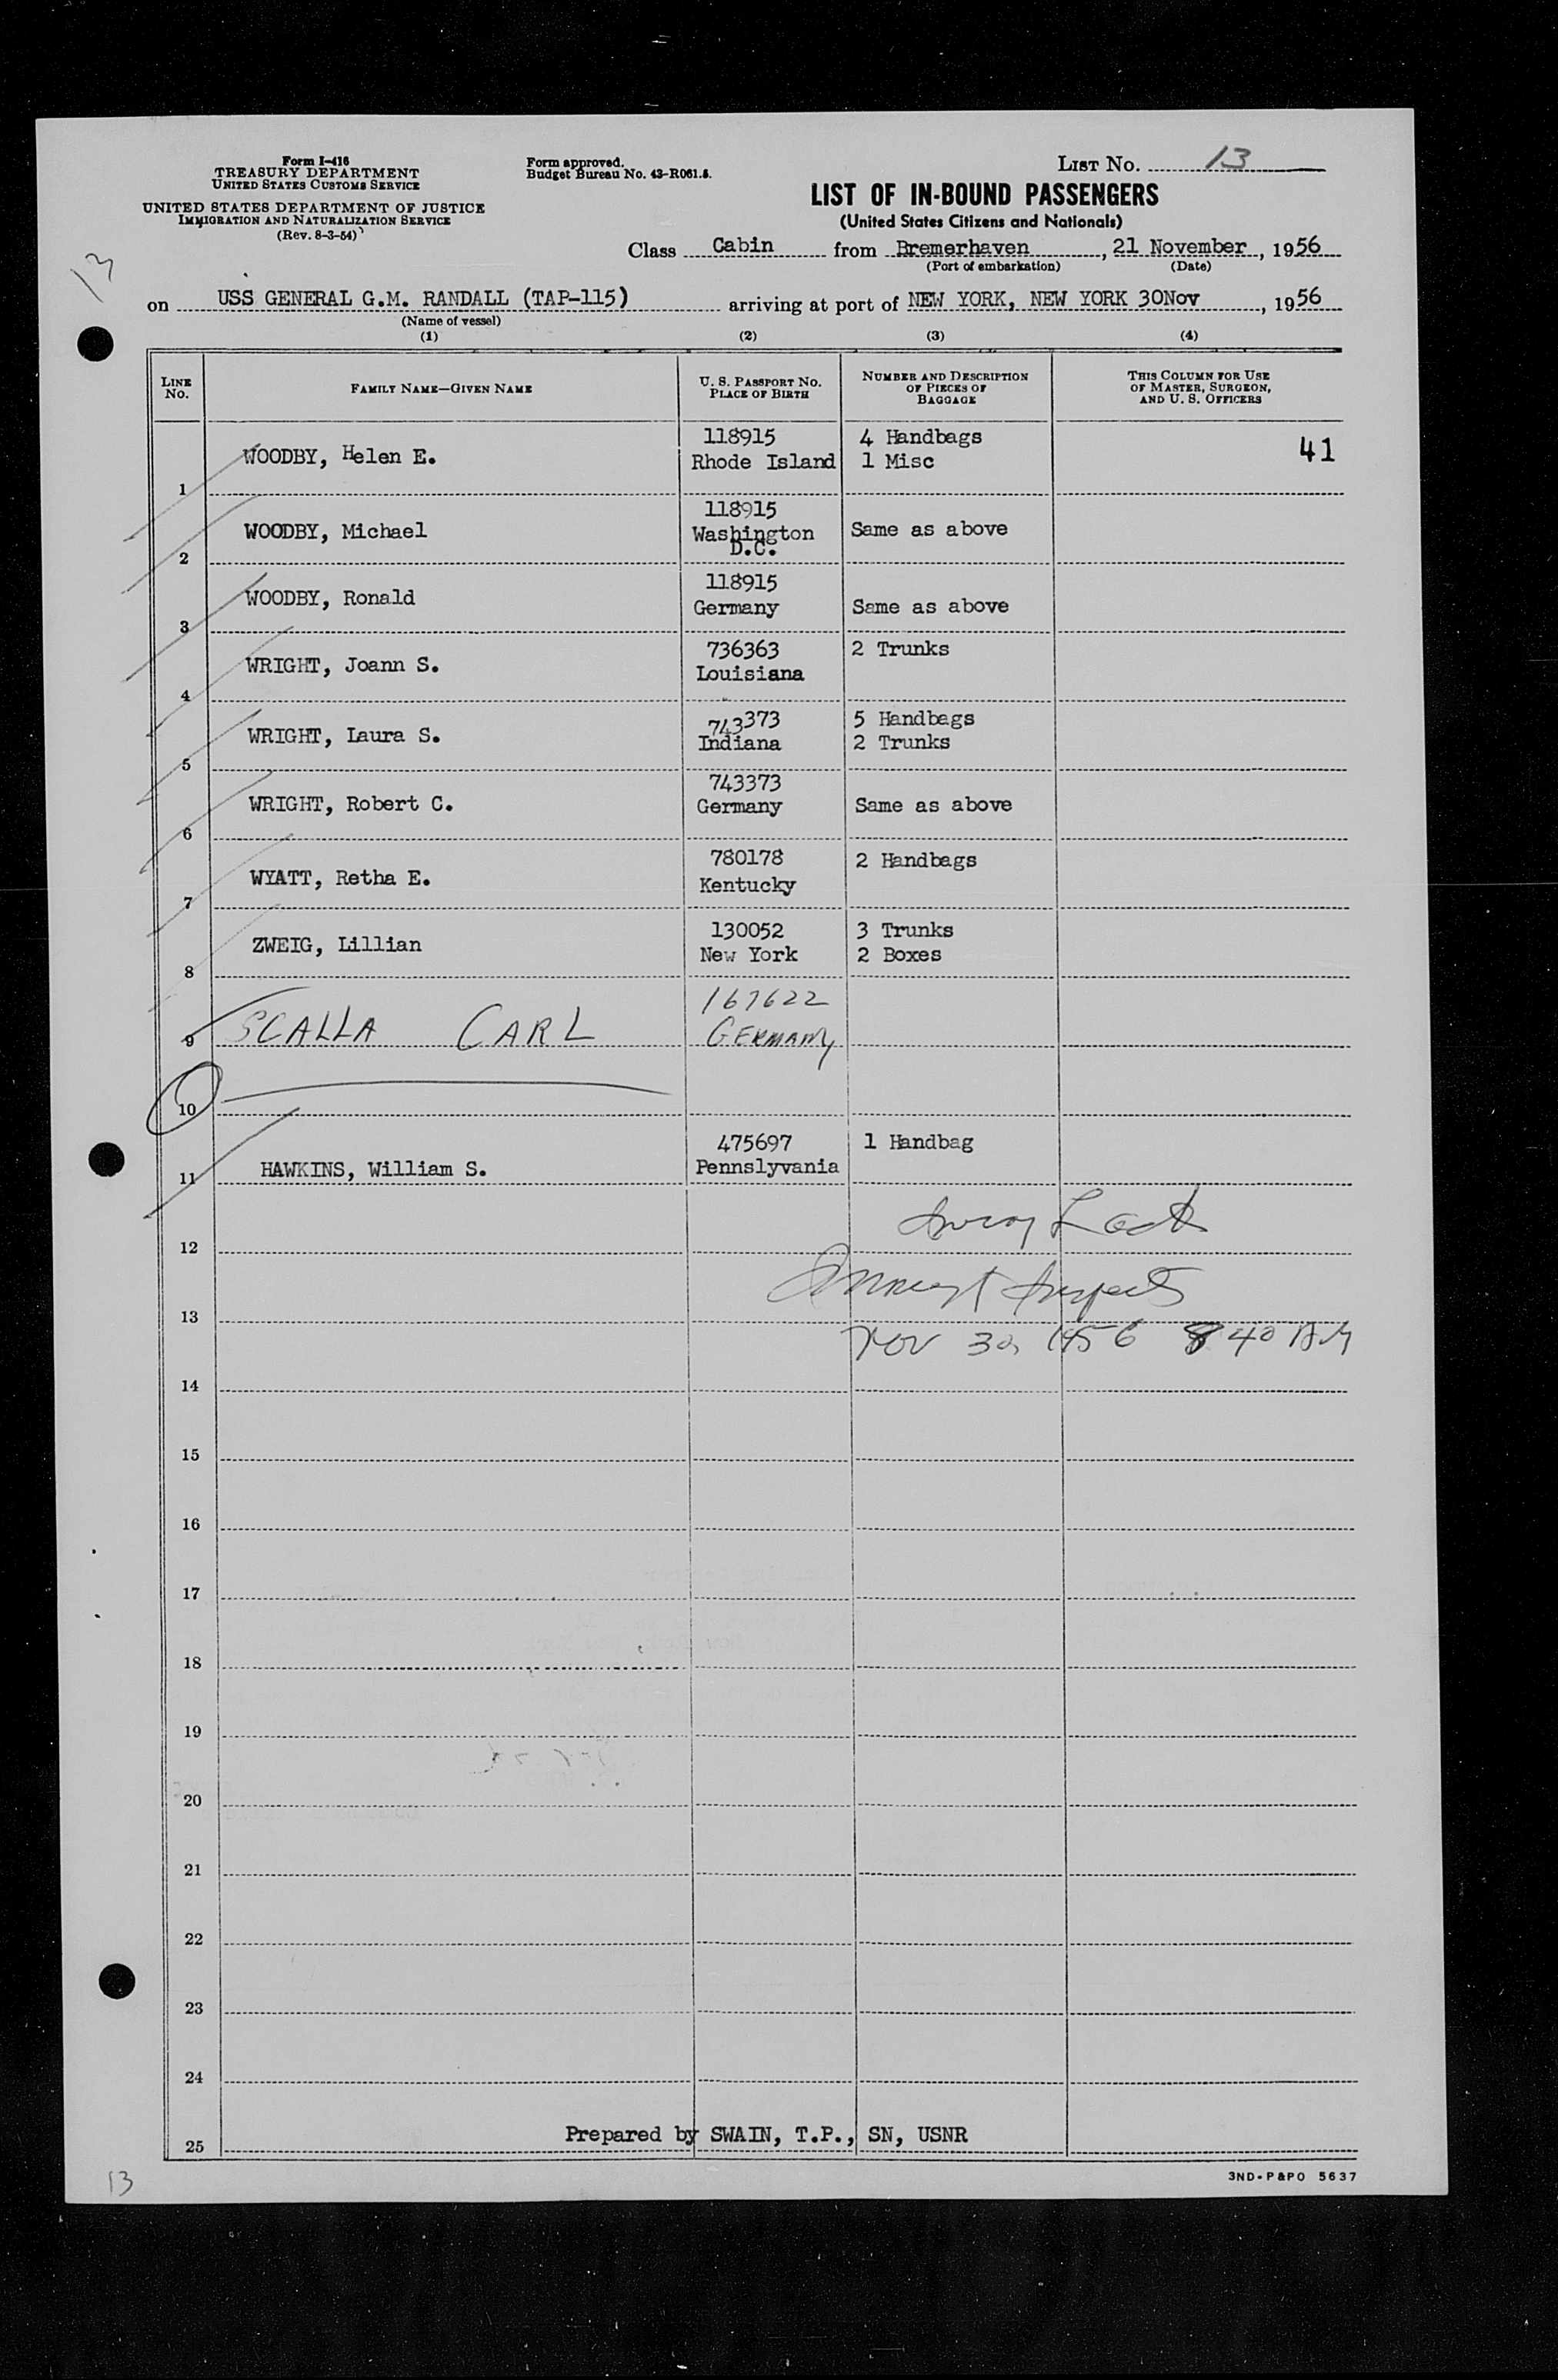 Form I-416
TREASURY DEPARTMENT
UNITED STATES CUSTOMS SERVICE
UNITED STATES DEPARTMENT OF JUSTICE
IMMIGRATION AND NATURALIZATION SERVICE
(Rev. 8-3-54)
Form approved.
Budget Bureau No. 43-R061.5.
LIST No. 13
LIST OF IN-BOUND PASSENGERS
(United States Citizens and Nationals)
Class Cabin from Bremerhaven, 21 November, 1956
(Port of embarkation) (Date)
13
on USS GENERAL G.M. RANDALL (TAP-115) arriving at port of NEW YORK, NEW YORK 30Nov, 1956
(Name of vessel)
(1) (2) (3) (4)
LINE No. FAMILY NAME—GIVEN NAME U. S. PASSPORT NO. PLACE OF BIRTH NUMBER AND DESCRIPTION OF PIECES OF BAGGAGE THIS COLUMN FOR USE OF MASTER, SURGEON, AND U. S. OFFICERS
1 WOODBY, Helen E. 118915 Rhode Island 4 Handbags 1 Misc 41
2 WOODBY, Michael 118915 Washington D.C. Same as above
3 WOODBY, Ronald 118915 Germany Same as above
4 WRIGHT, Joann S. 736363 Louisiana 2 Trunks
5 WRIGHT, Laura S. 743373 Indiana 5 Handbags 2 Trunks
6 WRIGHT, Robert C. 743373 Germany Same as above
7 WYATT, Retha E. 780178 Kentucky 2 Handbags
8 ZWEIG, Lillian 130052 New York 3 Trunks 2 Boxes
9 SCALLA CARL 167622 GERMANY
10
11 HAWKINS, William S. 475697 Pennslyvania 1 Handbag
12
13
Nov 30, 1956 8 40 AM
14
15
16
17
18
19
20
21
22
23
24
25 Prepared by SWAIN, T.P., SN, USNR
13
3ND-P&PO 5637